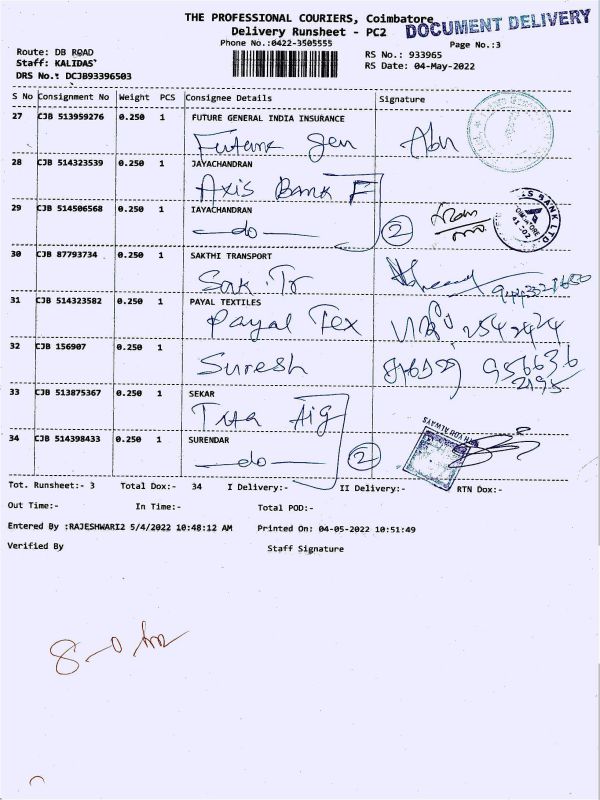 THE PROFESSIONAL COURIERS, Coimbatore
DOCUMENT DELIVERY
Delivery Runsheet - PC2
Phone No.:0422-3505555
Page No.:3
Route: DB ROAD
RS No.: 933965
Staff: KALIDAS
RS Date: 04-May-2022
DRS No.: DCJB93396503
S No Consignment No Weight PCS Consignee Details Signature
27 CJB 513959276 0.250 1 FUTURE GENERAL INDIA INSURANCE
Future Gen
28 CJB 514323539 0.250 1 JAYACHANDRAN
Axis Bank
29 CJB 514506568 0.250 1 IAYACHANDRAN
do 2
30 CJB 87793734 0.250 1 SAKTHI TRANSPORT
Sak. Tr
31 CJB 514323582 0.250 1 PAYAL TEXTILES
Payal Tex 2542424
32 CJB 156907 0.250 1
Suresh 956636
2195
33 CJB 513875367 0.250 1 SEKAR
Tata Aig
34 CJB 514398433 0.250 1 SURENDAR
do 2
WITH YOU ALWAYS
Tot. Runsheet:- 3 Total Dox:- 34 I Delivery:- II Delivery:- RTN Dox:-
Out Time:- In Time:- Total POD:-
Entered By :RAJESHWARI2 5/4/2022 10:48:12 AM Printed On: 04-05-2022 10:51:49
Verified By Staff Signature